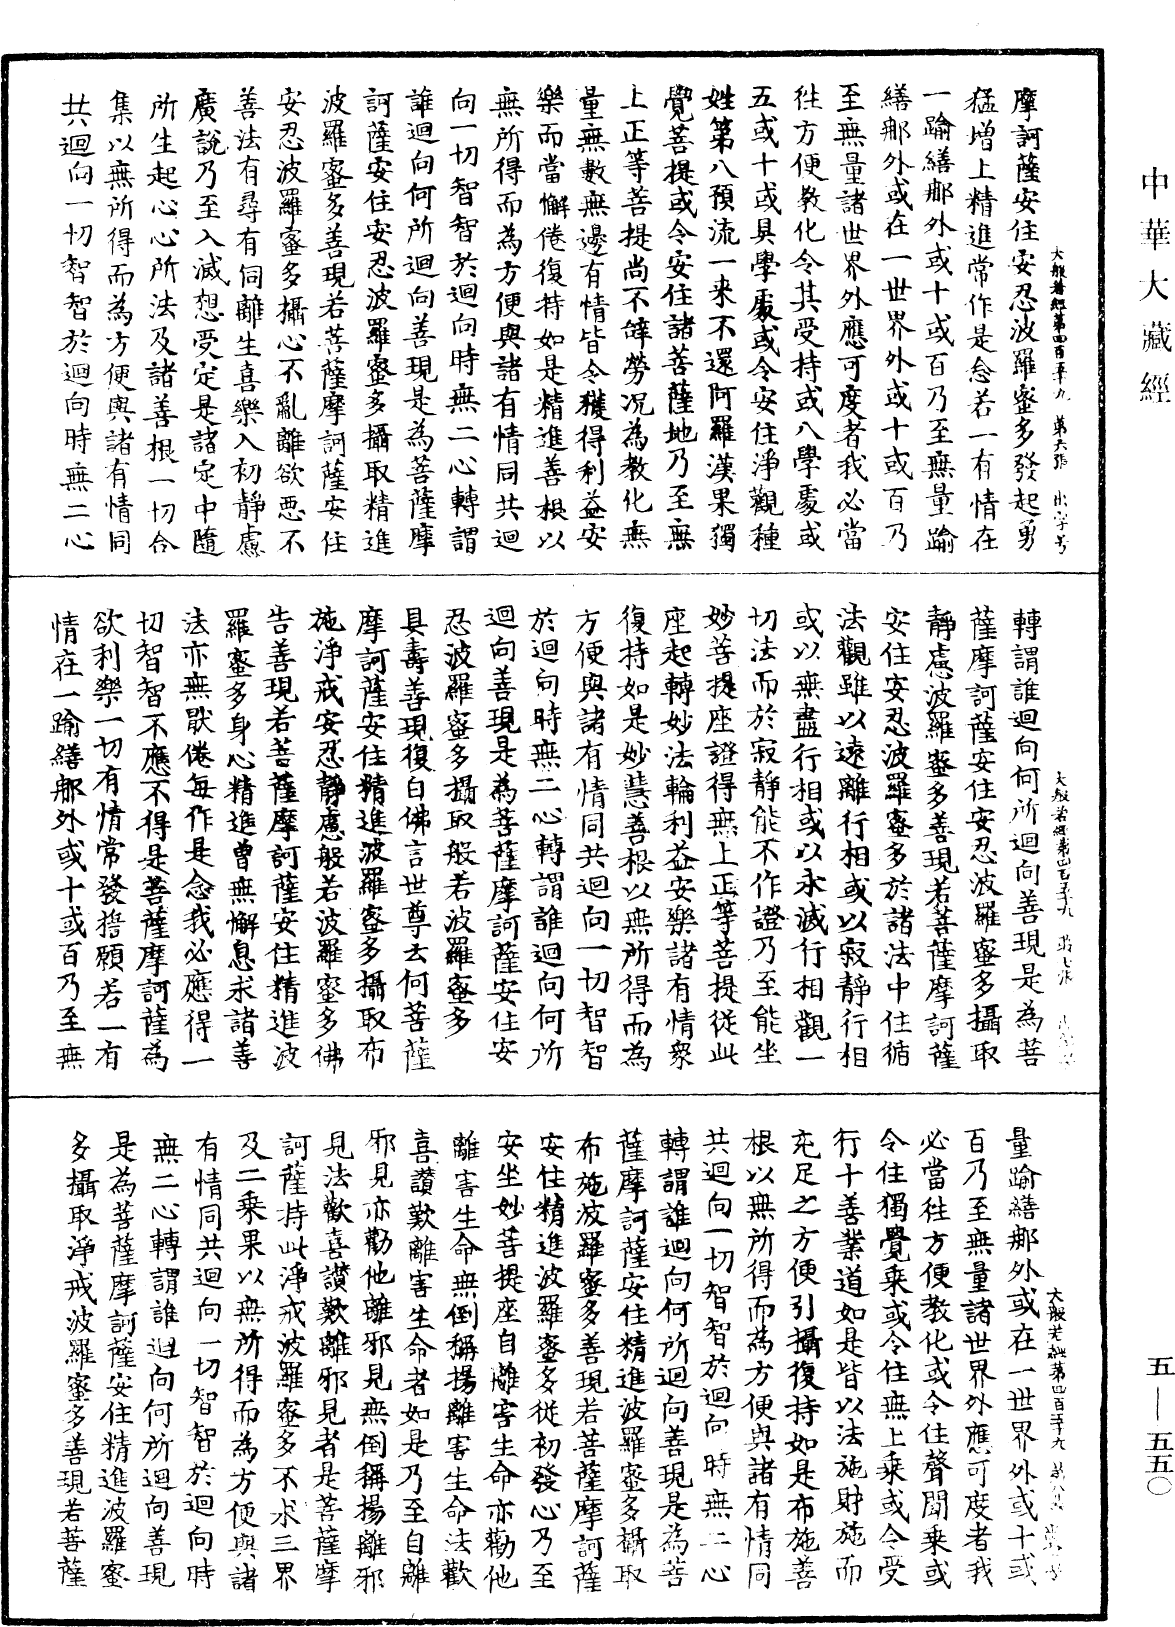 中華大藏經
大般若經第四百五十九 第六張 出字号
摩訶薩安住安忍波羅蜜多發起勇
猛增上精進常作是念若一有情在
一踰繕那外或十或百乃至無量踰
繕那外或在一世界外或十或百乃
至無量諸世界外應可度者我必當
往方便教化令其受持或八學處或
五或十或具學處或令安住淨觀種
姓第八預流一来不還阿羅漢果獨
覺菩提或令安住諸菩薩地乃至無
上正等菩提尚不辝勞况為教化無
量無數無邊有情皆令獲得利益安
樂而當懈倦復持如是精進善根以
無所得而為方便與諸有情同共迴
向一切智智於迴向時無二心轉謂
誰迴向何所迴向善現是為菩薩摩
訶薩安住安忍波羅蜜多攝取精進
波羅蜜多善現若菩薩摩訶薩安住
安忍波羅蜜多攝心不亂離欲惡不
善法有尋有伺離生喜樂入初靜慮
廣說乃至入滅想受定是諸定中隨
所生起心心所法及諸善根一切合
集以無所得而為方便與諸有情同
共迴向一切智智於迴向時無二心
大般若經第四百五十九 第七張
轉謂誰迴向何所迴向善現是為菩
薩摩訶薩安住安忍波羅蜜多攝取
靜慮波羅蜜多善現若菩薩摩訶薩
安住安忍波羅蜜多於諸法中住循
法觀雖以遠離行相或以寂靜行相
或以無盡行相或以永滅行相觀一
切法而於寂靜能不作證乃至能坐
妙菩提座證得無上正等菩提從此
座起轉妙法輪利益安樂諸有情衆
復持如是妙慧善根以無所得而為
方便與諸有情同共迴向一切智智
於迴向時無二心轉謂誰迴向何所
迴向善現是為菩薩摩訶薩安住安
忍波羅蜜多攝取般若波羅蜜多
具壽善現復白佛言世尊云何菩薩
摩訶薩安住精進波羅蜜多攝取布
施淨戒安忍靜慮般若波羅蜜多佛
告善現若菩薩摩訶薩安住精進波
羅蜜多身心精進曾無懈息求諸善
法亦無猒倦每作是念我必應得一
切智智不應不得是菩薩摩訶薩為
欲利樂一切有情常發擔願若一有
情在一踰繕那外或十或百乃至無
大般若經第四百五十九 第八張
量踰繕那外或在一世界外或十或
百乃至無量諸世界外應可度者我
必當往方便教化或令住聲聞乘或
令住獨覺乘或令住無上乘或令受
行十善業道如是皆以法施財施而
充足之方便引攝復持如是布施善
根以無所得而為方便與諸有情同
共迴向一切智智於迴向時無二心
轉謂誰迴向何所迴向善現是為菩
薩摩訶薩安住精進波羅蜜多攝取
布施波羅蜜多善現若菩薩摩訶薩
安住精進波羅蜜多從初發心乃至
安坐妙菩提座自離害生命亦勸他
離害生命無倒稱揚離害生命法歡
喜讚歎離害生命者如是乃至自離
邪見亦勸他離邪見無倒稱揚離邪
見法歡喜讃歎離邪見者是菩薩摩
訶薩持此淨戒波羅蜜多不求三界
及二乘果以無所得而為方便與諸
有情同共迴向一切智智於迴向時
無二心轉謂誰迴向何所迴向善現
是為菩薩摩訶薩安住精進波羅蜜
多攝取淨戒波羅蜜多善現若菩薩
五—五五〇